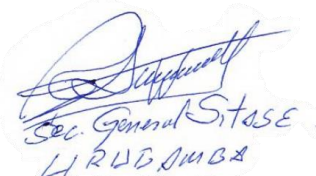 Sec. General SITASE
URUBAMBA